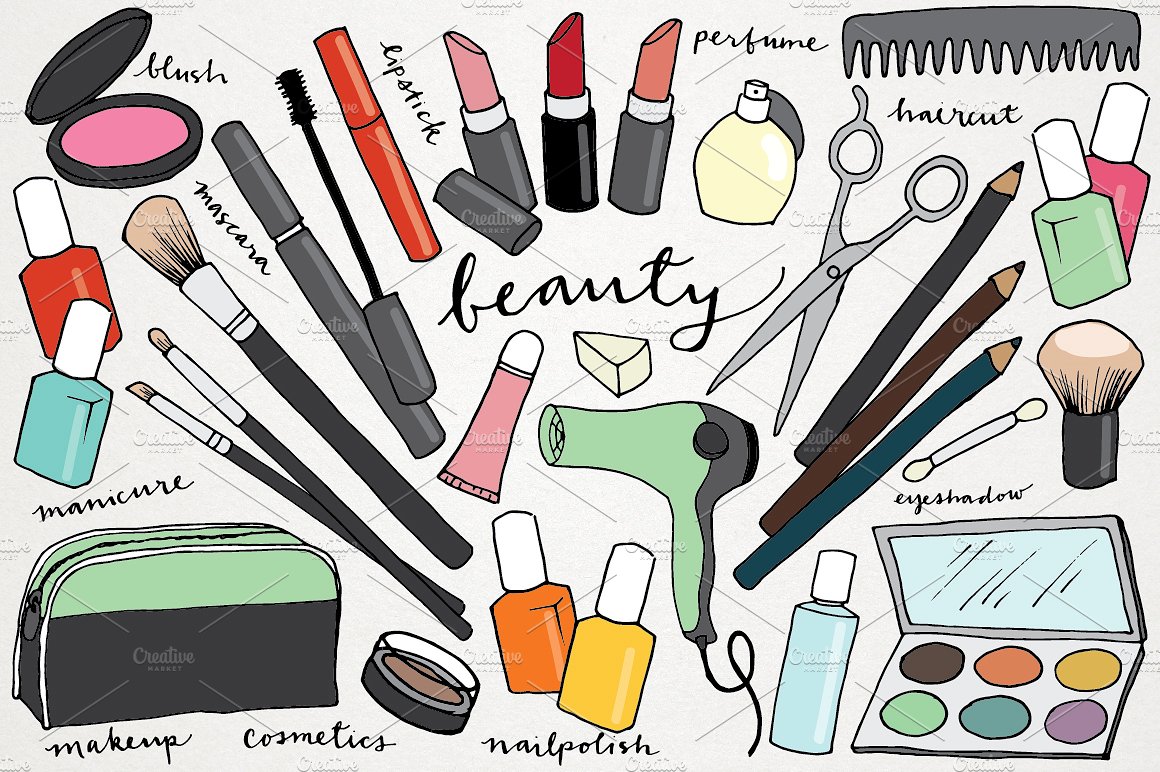 blush
lipstick
perfume
haircut
mascara
beauty
manicure
eyeshadow
makeup
cosmetics
nailpolish
Creative
MARKET